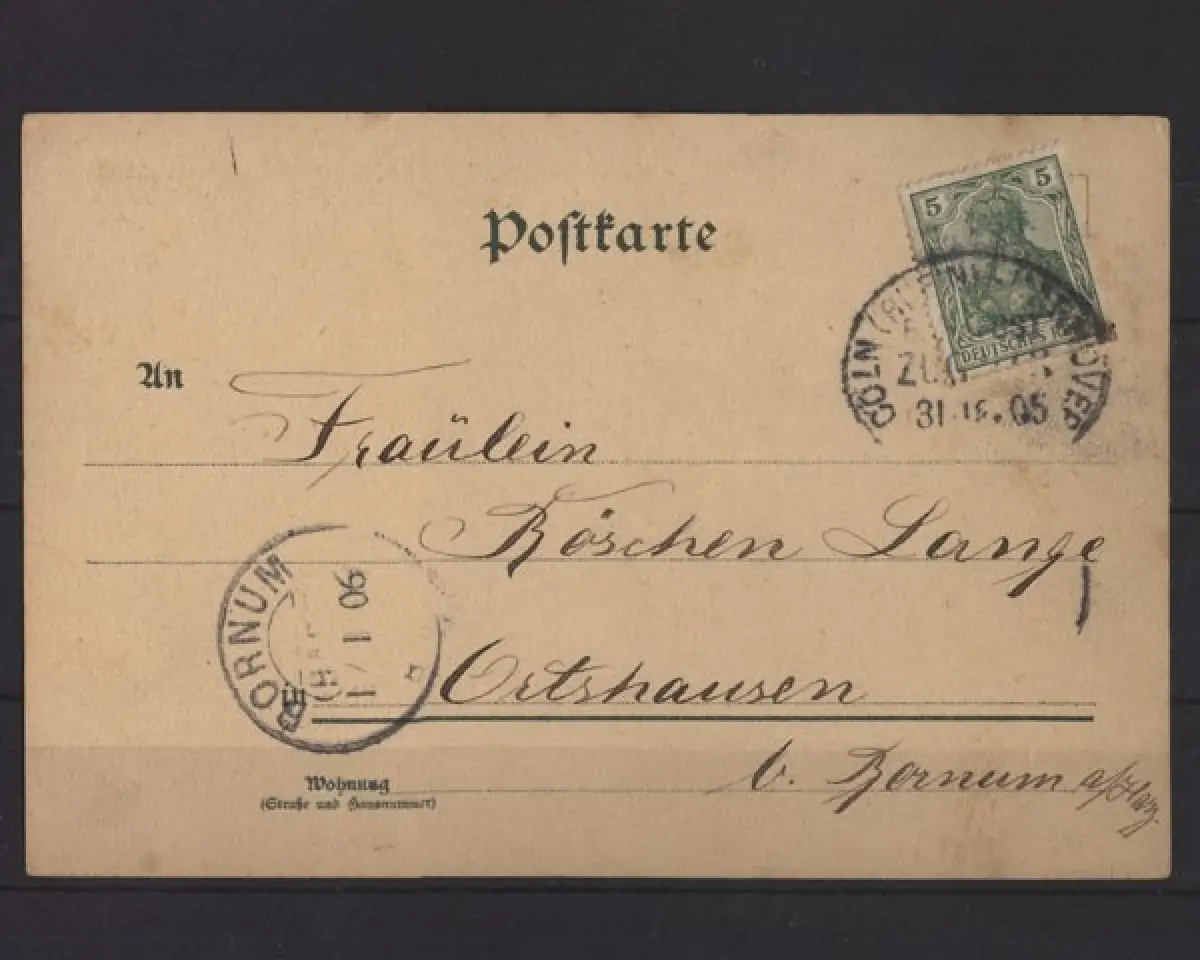 Postkarte
5 5
DEUTSCHES
CÖLN HANNOVER
ZUG
31. 05
An
Fräulein
Röschen Lange
BORNUM
1 1 06
in
Ortshausen
b. Bornum a/Harz.
Wohnung
(Straße und Hausnummer)